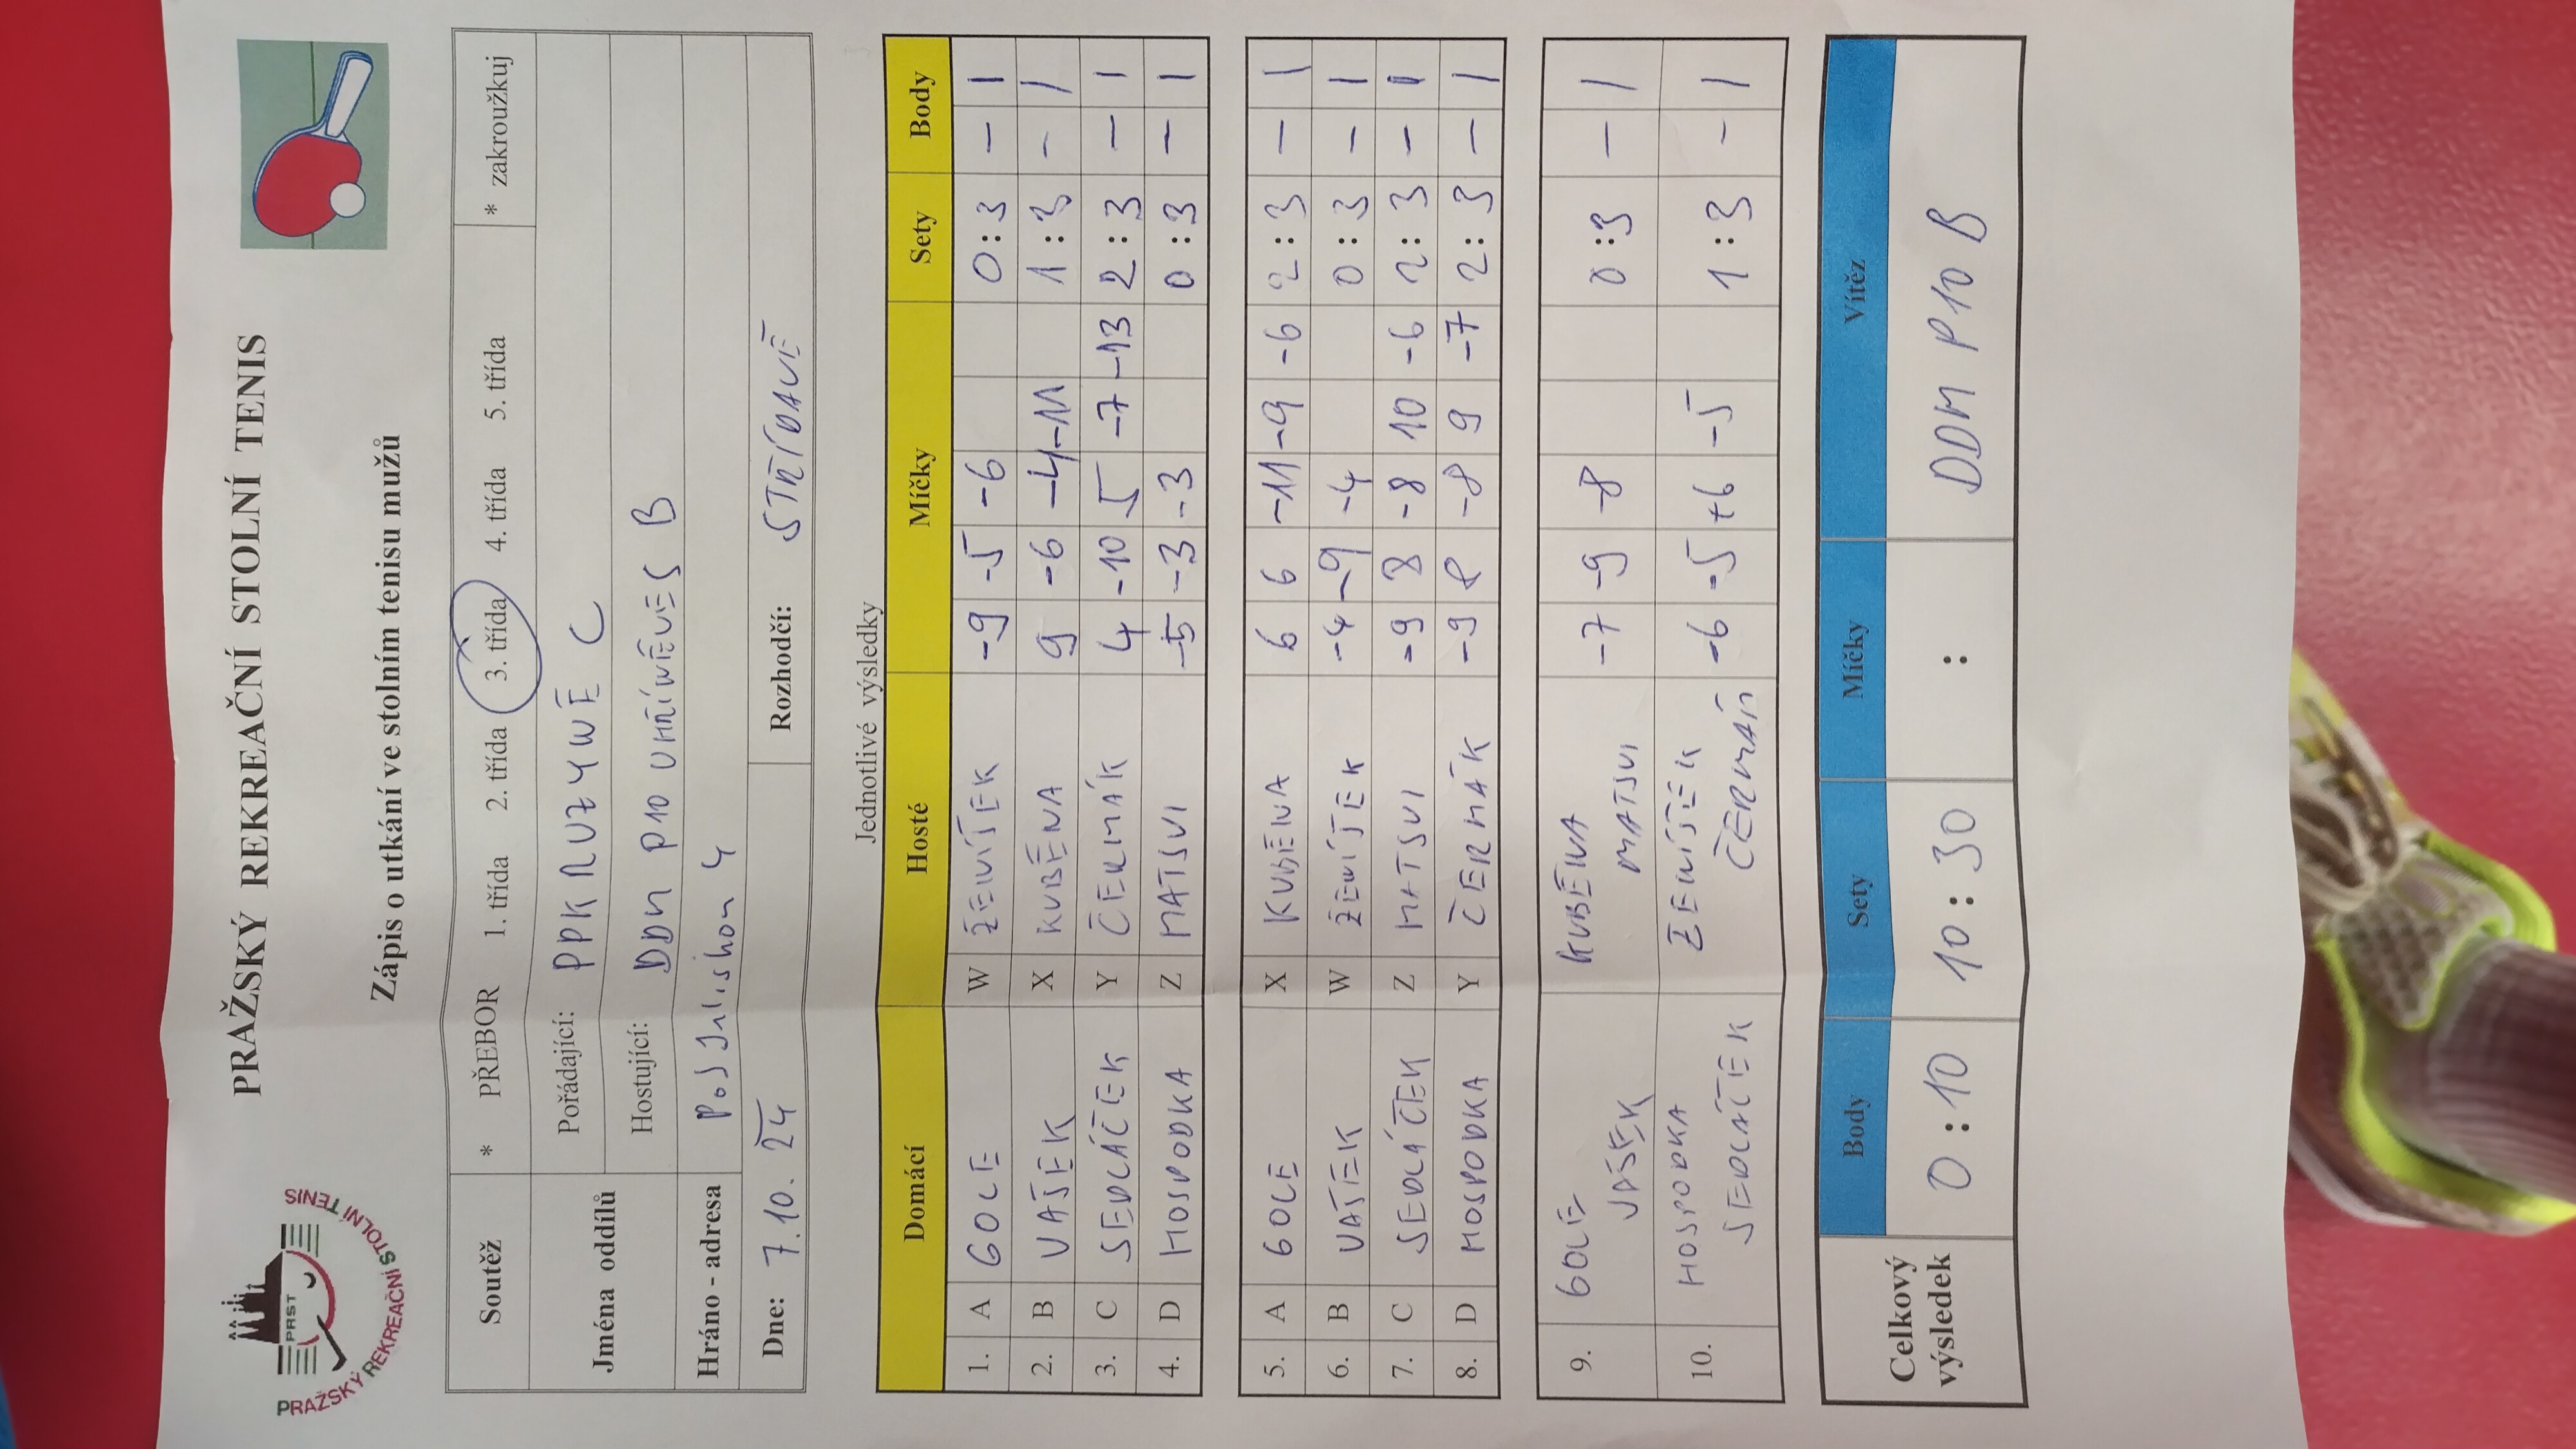 PRAŽSKÝ REKREAČNÍ STOLNÍ TENIS
PRST
PRAŽSKÝ REKREAČNÍ STOLNÍ TENIS
Zápis o utkání ve stolním tenisu mužů
Soutěž * PŘEBOR 1. třída 2. třída 3. třída 4. třída 5. třída * zakroužkuj
Jména oddílů
Pořádající: PPK NUZYWĚ C
Hostující: DDM P10 UHŘÍNĚVES B
Hráno - adresa Pod Jalishou 4
Dne: 7.10. 24 Rozhodčí: STŘÍDAVĚ
Jednotlivé výsledky
Domácí Hosté Míčky Sety Body
1. A GOLE W ŽENÍŠEK -9 -5 -6 0:3 – 1
2. B VAŠEK X KUBĚNA 9 -6 -4 -11 1:3 – 1
3. C SEDLÁČEK Y ČERMÁK 4 -10 5 -7 -13 2:3 – 1
4. D HOSPODKA Z MATSUI -5 -3 -3 0:3 – 1
5. A GOLE X KUBĚNA 6 6 -11 -9 -6 2:3 – 1
6. B VAŠEK W ŽENÍŠEK -4 -9 -4 0:3 – 1
7. C SEDLÁČEK Z MATSUI -9 8 -8 10 -6 2:3 – 1
8. D HOSPODKA Y ČERMÁK -9 8 -8 9 -7 2:3 – 1
9. GOLE KUBĚNA -7 -9 -8 0:3 – 1
VAŠEK MATSUI
10. HOSPODKA ŽENÍŠEK -6 -5 +6 -5 1:3 – 1
SEDLÁČEK ČERMÁK
Celkový výsledek
Body Sety Míčky Vítěz
0:10 10:30 : DDM P10 B